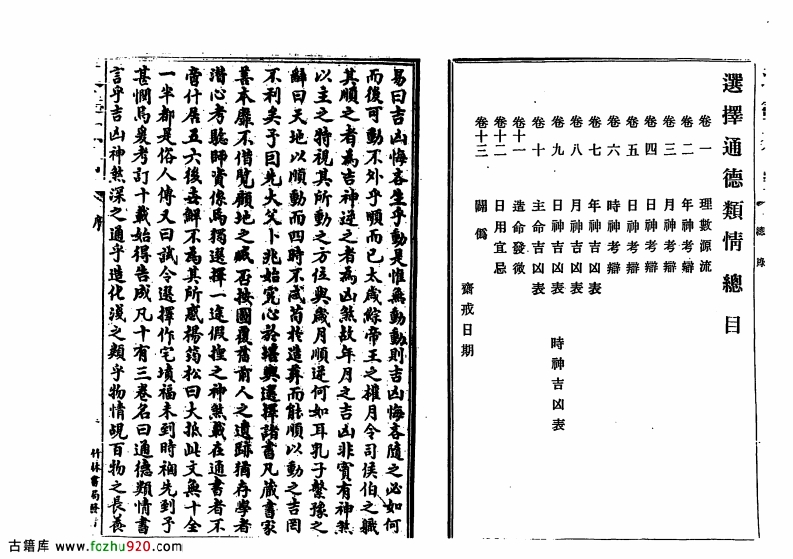 選擇通德類情總目
卷一 理數源流
卷二 年神考辯
卷三 月神考辯
卷四 日神考辯
卷五 日神考辯
卷六 時神考辯
卷七 年神吉凶表
卷八 月神吉凶表
卷九 日神吉凶表 時神吉凶表
卷十 主命吉凶表
卷十一 造命發微
卷十二 日用宜忌
卷十三 闢僞
齋戒日期
總錄
易曰吉凶悔吝生乎動是惟無動動則吉凶悔吝隨之必如何
而後可動不外乎順而已太歲綜帝王之權月令司侯伯之職
其順之者為吉神逆之者為凶煞故年月之吉凶非實有神煞
以主之特視其所動之方位與歲月順逆何如耳孔子繫豫之
辭曰天地以順動而四時不忒苟於造葬而能順以動之吉罔
不利矣予曰先大父卜兆始究心於堪輿選擇諸書凡藏書家
善本靡不借覽顧地之臧否按圖覆舊前人之遺跡猶存學者
潛心考驗師資像焉獨選擇一途假捏之神煞載在通書者不
啻什居五六後
不為其所惑楊筠松曰大抵此文無十全
一半都是俗人傳又曰試令選擇作宅墳福未到時禍先到予
甚憫焉爰考訂十載始得告成凡十有三卷名曰通德類情書
言乎吉凶神煞深之通乎造化淺之類乎物情覘百物之長養
序
竹林書局發
古籍库 www.fczhu920.com